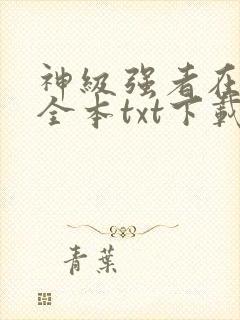 神級强者在
全本txt下載
青葉